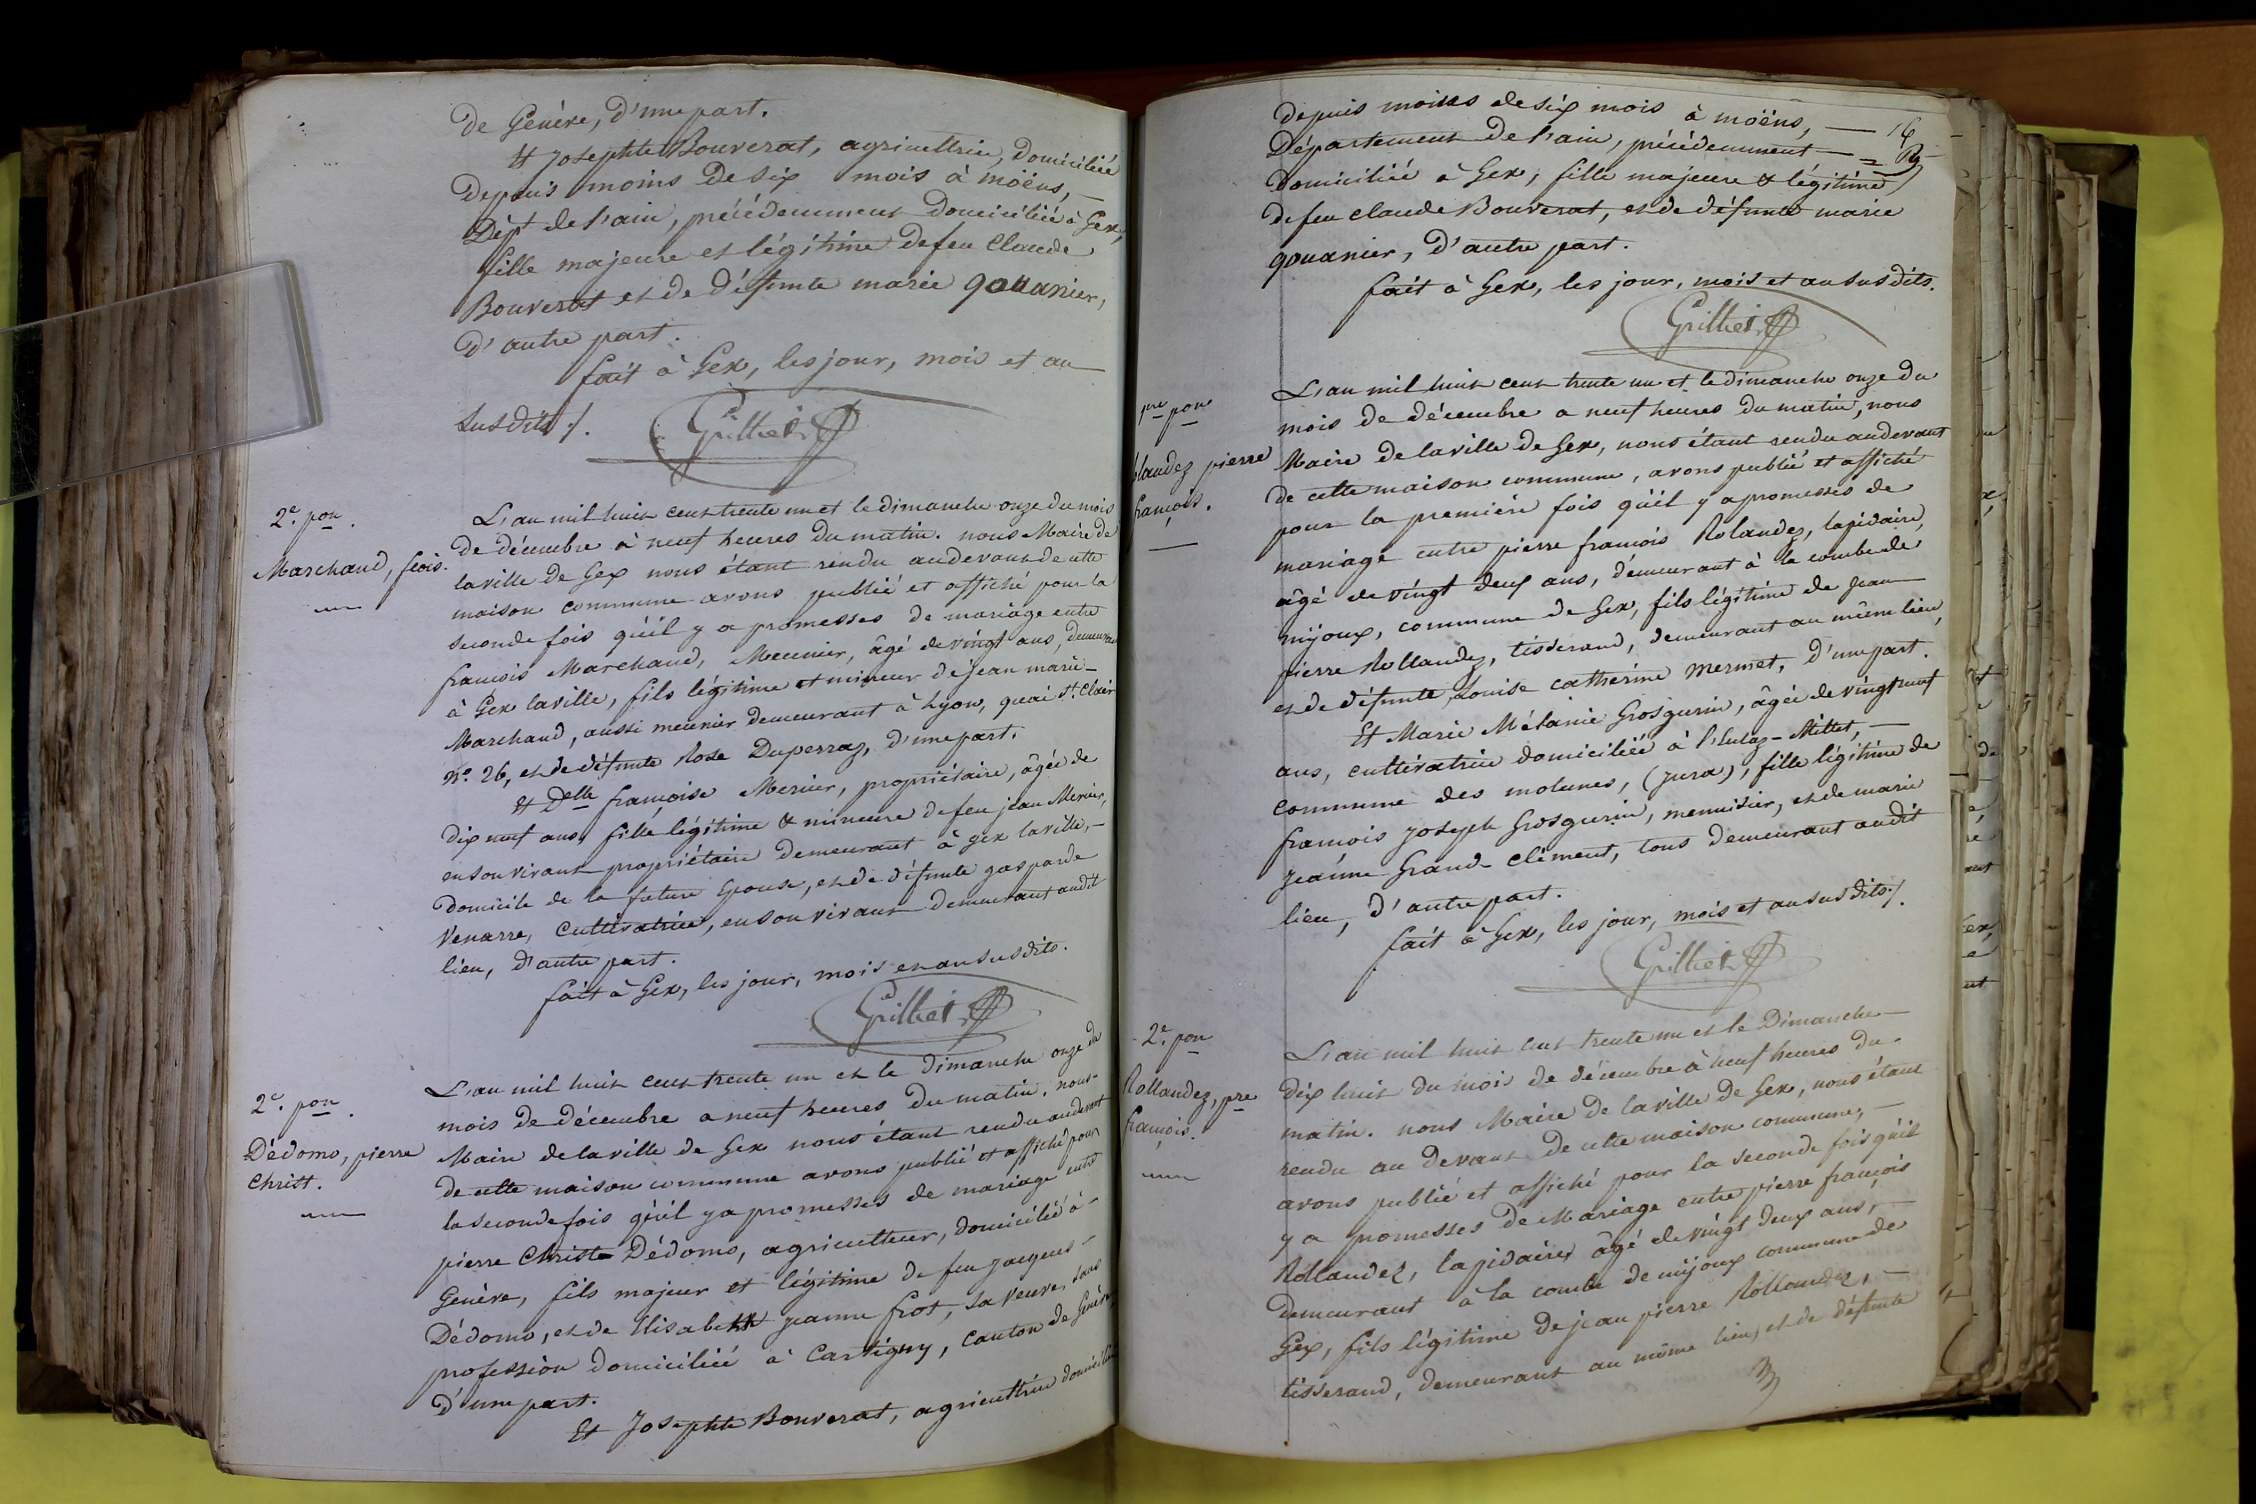 de Genève, d'une part.
Et Josephte Bouverat, agricultrice, domiciliée
depuis moins de six mois à moëns, —
Dépt de l'ain, précédemment domiciliée à Gex,
fille majeure et légitime de feu Claude
Bouverat et de défunte marie gouanier,
d'autre part.
fait à Gex, les jour, mois et an
susdits ./.
Grilliet
2e. pon.
Marchand, fcois.
L'an mil huit cent trente un et le dimanche onze du mois
de décembre à neuf heures du matin. nous Maire de
la ville de Gex nous étant rendu au devant de cette
maison commune avons publié et affiché pour la
seconde fois qu'il y a promesses de mariage entre
françois Marchand, Meunier, âgé de vingt ans, demeurant
à Gex la ville, fils légitime et mineur de jean marie —
Marchand, aussi meunier demeurant à Lyon, quai St. Clair
No. 26, et de défunte Rose Duperraz, d'une part.
Et Delle françoise Mernier, propriétaire, âgée de
dix neuf ans, fille légitime & mineure de feu jean Mernier,
en son vivant propriétaire demeurant à gex la ville, —
domicile de la future Epouse, et de défunte gasparde
Venarre, cultivatrice, en son vivant demeurant audit
lieu, d'autre part.
fait à Gex, les jour, mois et an susdits.
Grilliet
2e. pon.
Dédomo, pierre
Christ.
L'an mil huit cent trente un et le dimanche onze du
mois de décembre a neuf heures du matin. nous —
Maire de la ville de Gex nous étant rendu au devant
de cette maison commune avons publié et affiché pour
la seconde fois qu'il y a promesses de mariage entre
pierre Christ Dédomo, agriculteur, domicilié à —
Genève, fils majeur et légitime de feu jacques —
Dédomo, et de Elisabeth jeanne frot, sa veuve, sans
profession domiciliée à Cartigny, canton de Genève
d'une part.
Et Josephte Bouverat, agricultrice domiciliée
depuis moins de six mois à moëns, —
Département de l'ain, précédemment —
domiciliée à Gex, fille majeure & légitime
de feu claude Bouverat, et de défunte marie
gouanier, d'autre part.
fait à Gex, les jour, mois et an susdits.
Grilliet
1re pon
Rolandez pierre
françois.
L'an mil huit cent trente un et le dimanche onze du
mois de décembre a neuf heures du matin, nous
Maire de la ville de Gex, nous étant rendu au devant
de cette maison commune, avons publié et affiché
pour la première fois qu'il y a promesses de
mariage entre pierre françois Rolandez, lapidaire,
âgé de vingt deux ans, demeurant à la combe de
mijoux, commune de Gex, fils légitime de jean
pierre Rollandez, tisserand, demeurant au même lieu,
et de défunte Louise catherine Mermet, d'une part.
Et Marie Mélanie Grosgurin, âgée de vingt neuf
ans, cultivatrice domiciliée à l'Eulaz-Millet, —
commune des molunes, (jura), fille légitime de
françois joseph Grosgurin, menuisier, et de marie
jeanne Grand-Clément, tous demeurant audit
lieu, d'autre part.
fait à Gex, les jour, mois et an susdits ./.
Grilliet
2e. pon
Rollandez, pre
françois.
L'an mil huit cent trente un et le Dimanche —
dix huit du mois de décembre à neuf heures du
matin. nous Maire de la ville de Gex, nous étant
rendu au devant de cette maison commune, —
avons publié et affiché pour la seconde fois qu'il
y a promesses de Mariage entre pierre françois
Rollandez, lapidaire, âgé de vingt deux ans, —
demeurant à la combe de mijoux commune de
Gex, fils légitime de jean pierre Rollandez, —
tisserand, demeurant au même lieu, et de défunte